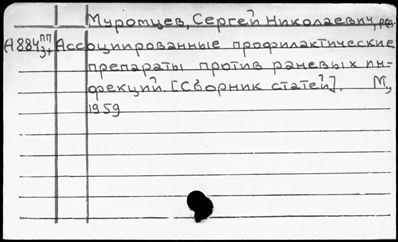 Муромцев, Сергей Николаевич, ред.
А884 пп Ассоциированные профилактические
3+ препараты против раневых ин-
фекций. [Сборник статей]. М.,
1959